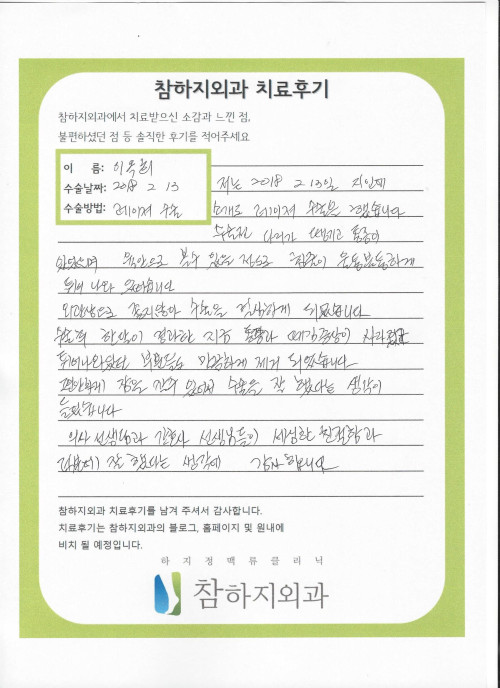 참하지외과 치료후기
참하지외과에서 치료받으신 소감과 느낀 점,
불편하셨던 점 등 솔직한 후기를 적어주세요
이 름: 이옥희
수술날짜: 2018 2 13
수술방법: 레이저 수술
저는 2018 2 13일 지인에
소개로 레이저 수술을 했습니다
수술전 다리가 땡기고 통증이
있었으며 육안으로 볼수 있을 정도로 힘줄이 울퉁불퉁하게
튀어 나와 있었습니다
외관상으로 좋지않아 수술을 결심하게 되었습니다
수술 후 한달이 경과한 지금 통증과 땡김증상이 사라졌고
튀어나와있던 부분들도 말끔하게 제거 되었습니다
편안하게 잠을 잘수 있어서 수술을 잘 했다는 생각이
듭니다
의사 선생님과 간호사 선생님들이 세심한 친절함과
잘 했다는 생각에 감사합니다
참하지외과 치료후기를 남겨 주셔서 감사합니다.
치료후기는 참하지외과의 블로그, 홈페이지 및 원내에
비치 될 예정입니다.
하지정맥류클리닉
참하지외과